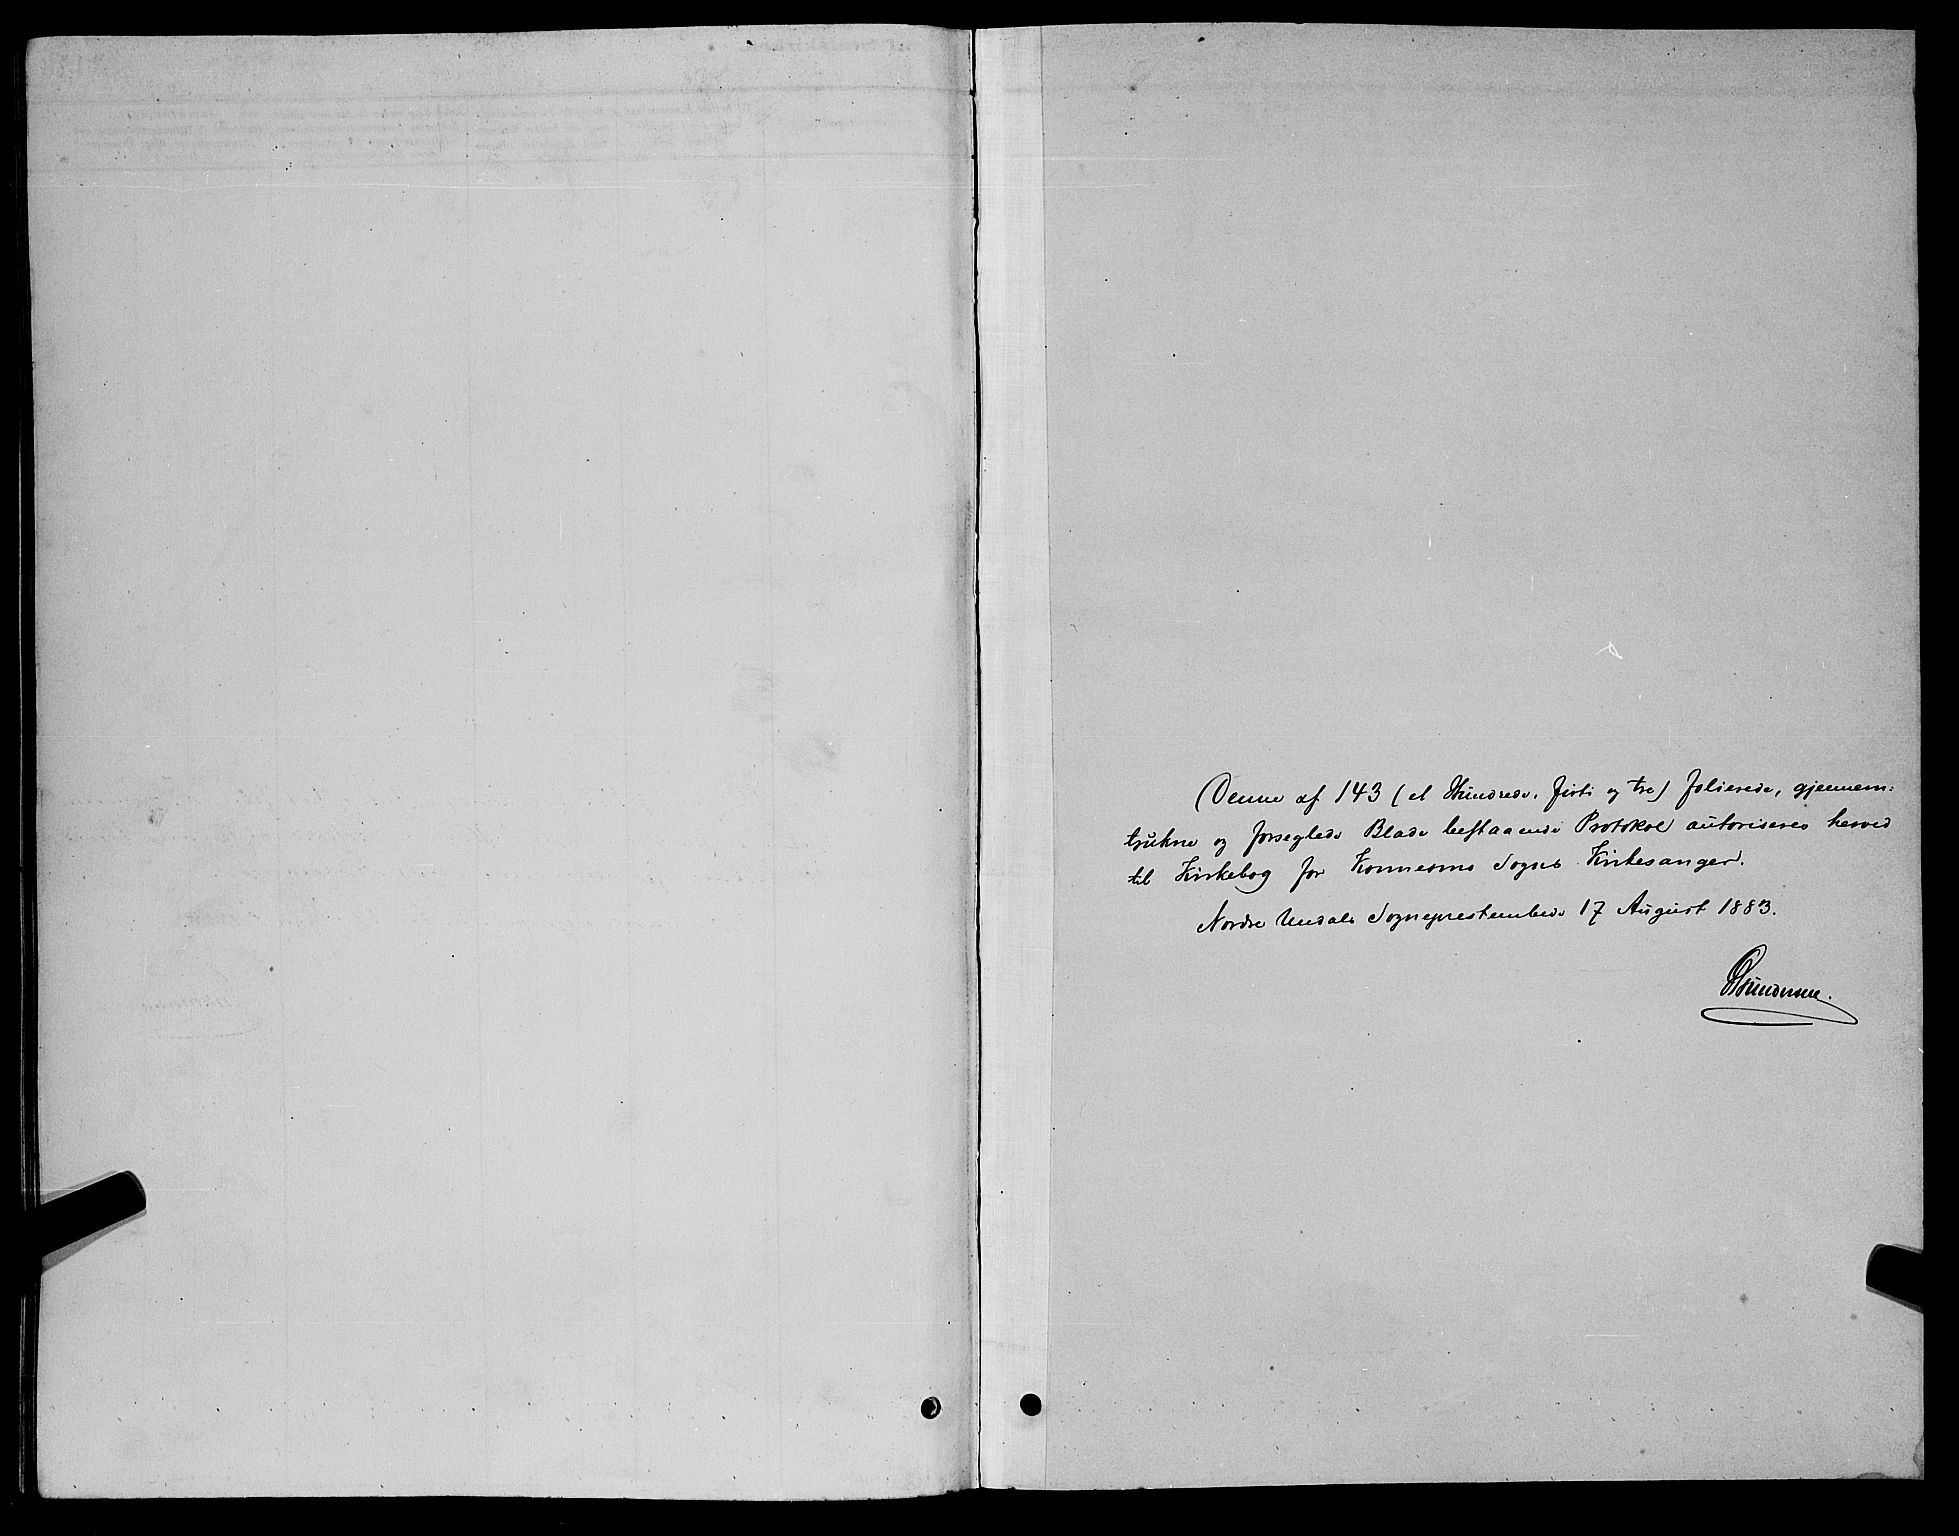 Denne af 143 (et Hundrede, firti og tre) folierede, gjennem:
trukne og forseglede Blade bestaaende Protokol autoriseres herved
til Kirkebog for Konnesmo Sogns Kirkesanger.
Nordre Undals Sogneprestembede 17 August 1883.